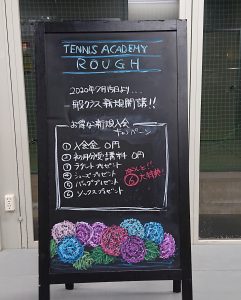 TENNIS ACADEMY
ROUGH
2020年7月15日より...
一般クラス新規開講!!
お得な新規入会
キャンペーン
① 入会金 0円
② 初月分受講料 0円
③ ラケットプレゼント
④ シューズプレゼント
⑤ バッグプレゼント
⑥ ソックスプレゼント
⑥大特典!